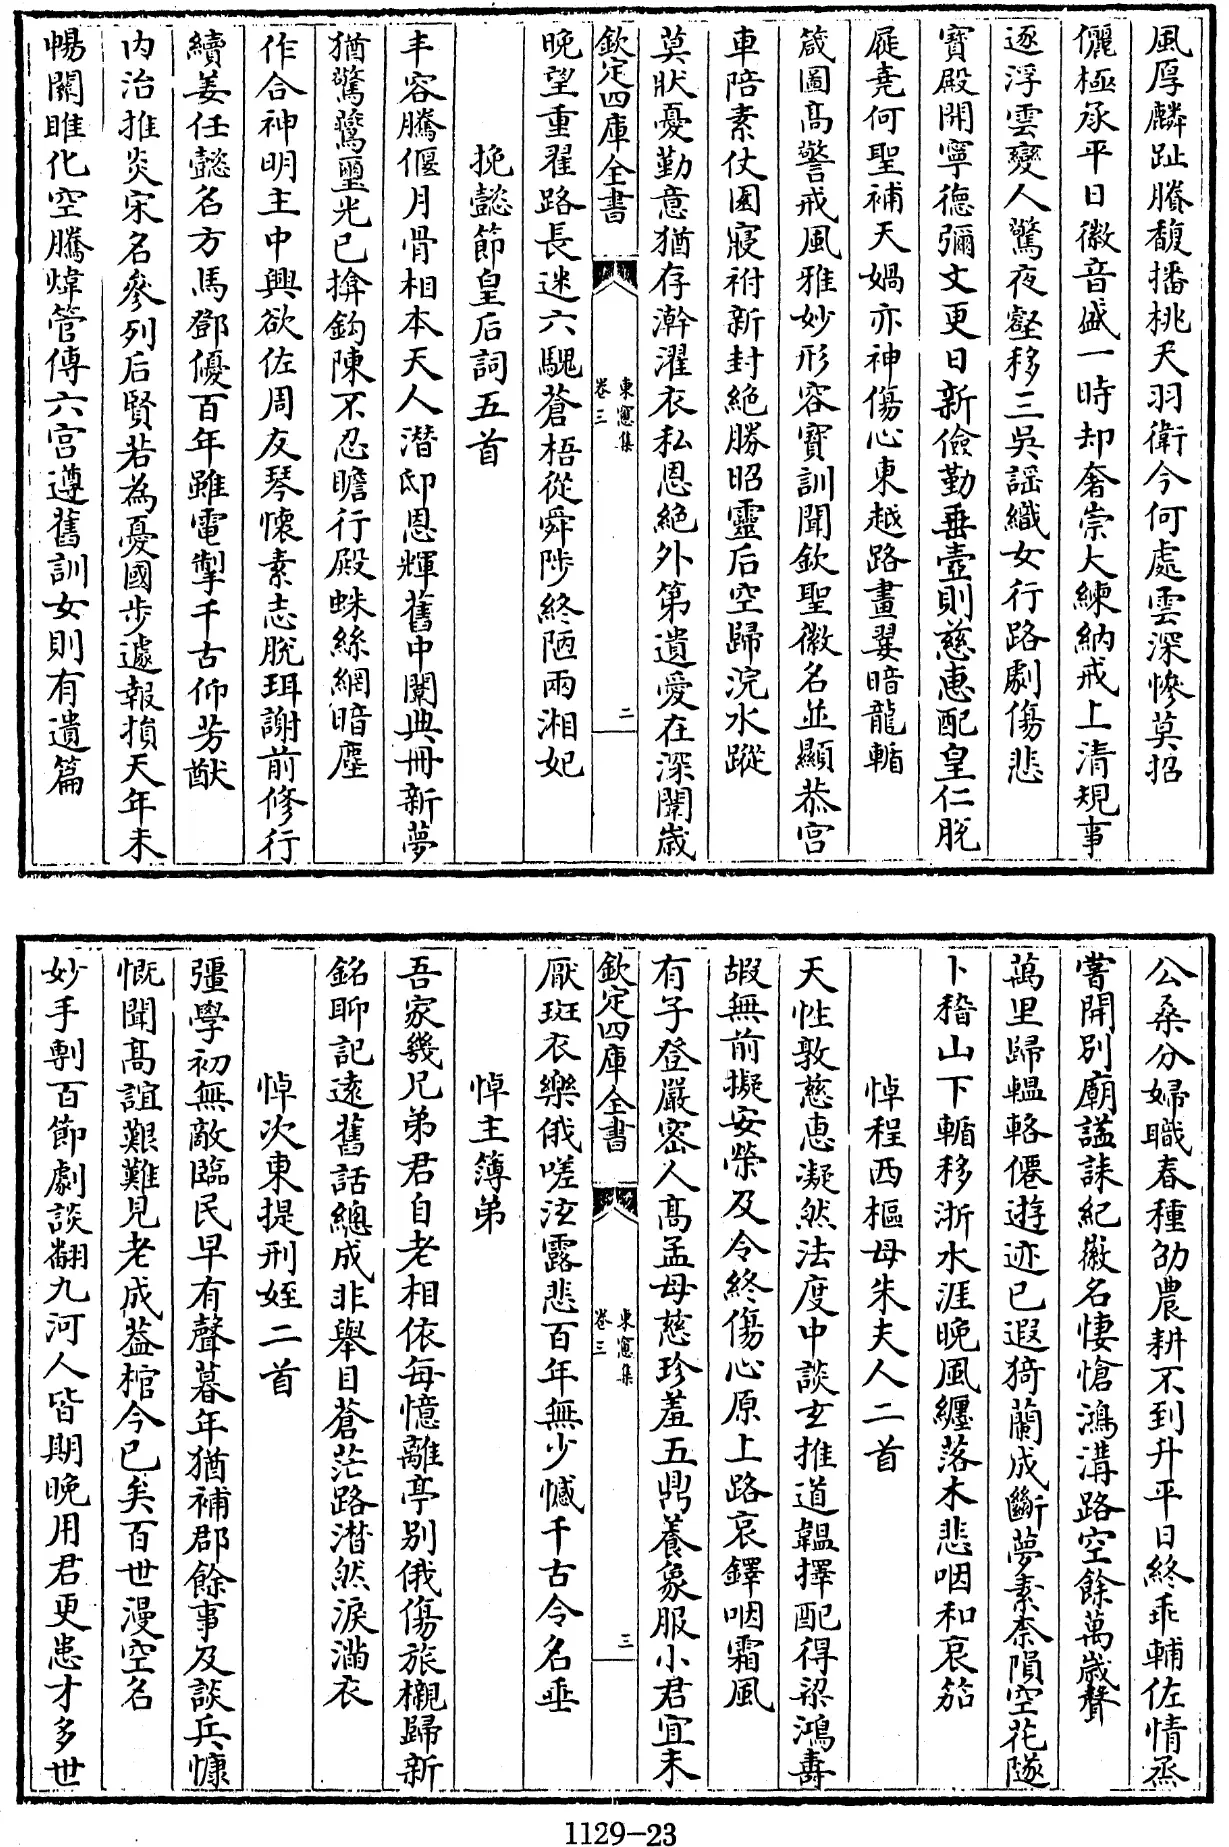 風厚麟趾賸馥播桃夭羽衛今何處雲深慘莫招
儷極承平日徽音盛一時却奢崇大練納戒上清規事
逐浮雲變人驚夜壑移三吳謡織女行路劇傷悲
寳殿開寧德彌文更日新儉勤垂壼則慈惠配皇仁脱
屣堯何聖補天媧亦神傷心東越路畫翣暗龍輴
箴圖髙警戒風雅妙形容寳訓聞欽聖徽名並顯恭宫
車陪素仗園寢祔新封絶勝昭靈后空歸浣水蹤
莫狀憂勤意猶存澣濯衣私恩絶外第遺愛在深闈歳
欽定四庫全書
東窻集
卷三
二
晚望重翟路長迷六騩蒼梧從舜陟終陋兩湘妃
挽懿節皇后詞五首
丰容騰偃月骨相本天人潜邸恩輝舊中闈典冊新夢
猶驚鷟璽光已揜鈎陳不忍瞻行殿蛛絲網暗塵
作合神明主中興欲佐周友琴懷素志脱珥謝前修行
續姜任懿名方馬鄧優百年雖電掣千古仰芳猷
内治推炎宋名參列后賢若為憂國步遽報損天年未
暢關雎化空騰煒管傳六宫遵舊訓女則有遺篇
公桑分婦職春種劭農耕不到升平日終乖輔佐情烝
嘗開别廟諡誄紀徽名悽愴鴻溝路空餘萬歳聲
萬里歸輼輅僊遊迹已遐猗蘭成斷夢素柰隕空花隧
卜稽山下輴移浙水涯晚風纒落木悲咽和哀笳
悼程西樞母朱夫人二首
天性敦慈惠凝然法度中談𤣥推道韞擇配得梁鴻壽
嘏無前擬安榮及令終傷心原上路哀鐸咽霜風
有子登嚴宻人髙孟母慈珍羞五鼎養象服小君宜未
欽定四庫全書
東窻集
卷三
三
厭斑衣樂俄嗟泫露悲百年無少憾千古令名垂
悼主簿弟
吾家幾兄弟君自老相依每憶離亭别俄傷旅櫬歸新
銘聊記逺舊話總成非舉目蒼茫路潸然淚滿衣
悼次東提刑姪二首
彊學初無敵臨民早有聲暮年猶補郡餘事及談兵慷
慨聞髙誼艱難見老成葢棺今已矣百世漫空名
妙手剸百節劇談翻九河人皆期晚用君更患才多世
1129-23